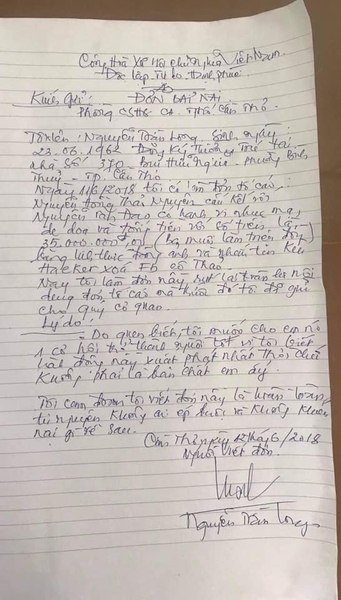 Cộng Hòa Xã Hội chủ nghĩa Việt Nam.
Độc lập Tự do Hạnh phúc
ĐƠN BÃI NẠI
Kính gửi: Phòng CSHS CA TP Cần Thơ
Tôi tên: Nguyễn Trần Long Sinh ngày
23.06.1962 Đăng Ký Thường Trú tại
nhà số 370 Bùi Hữu Nghĩa - Phường Bình
Thuỷ - TP. Cần Thơ
Ngày 11/6/2018 tôi có làm đơn tố cáo
Nguyễn Đông Thái Nguyên cấu kết với
Nguyễn có hành vi nhục mạ
đe doạ và tống tiền với số tiền là
35.000.000,đ (Ba mươi lăm triệu đồng)
bằng hình thức đăng ảnh và nhắn tin Kêu
Hacker xoá Fb cô Thảo
Nay tôi làm đơn này rút lại toàn bộ nội
dung đơn tố cáo mà trước đó tôi đã gửi
cho quý cơ quan.
Lý do:
- Do quen biết, tôi muốn cho em nó
1 cơ hội trở thành người tốt vì tôi biết
hành động này xuất phát nhất thời chứ
không phải là bản chất em ấy.
Tôi cam đoan tôi viết đơn này là hoàn toàn
tự nguyện không ai ép buộc và không khiếu
nại gì về sau.
Cần Thơ, ngày 12 tháng 6/2018
Người viết đơn.
Nguyễn Trần Long